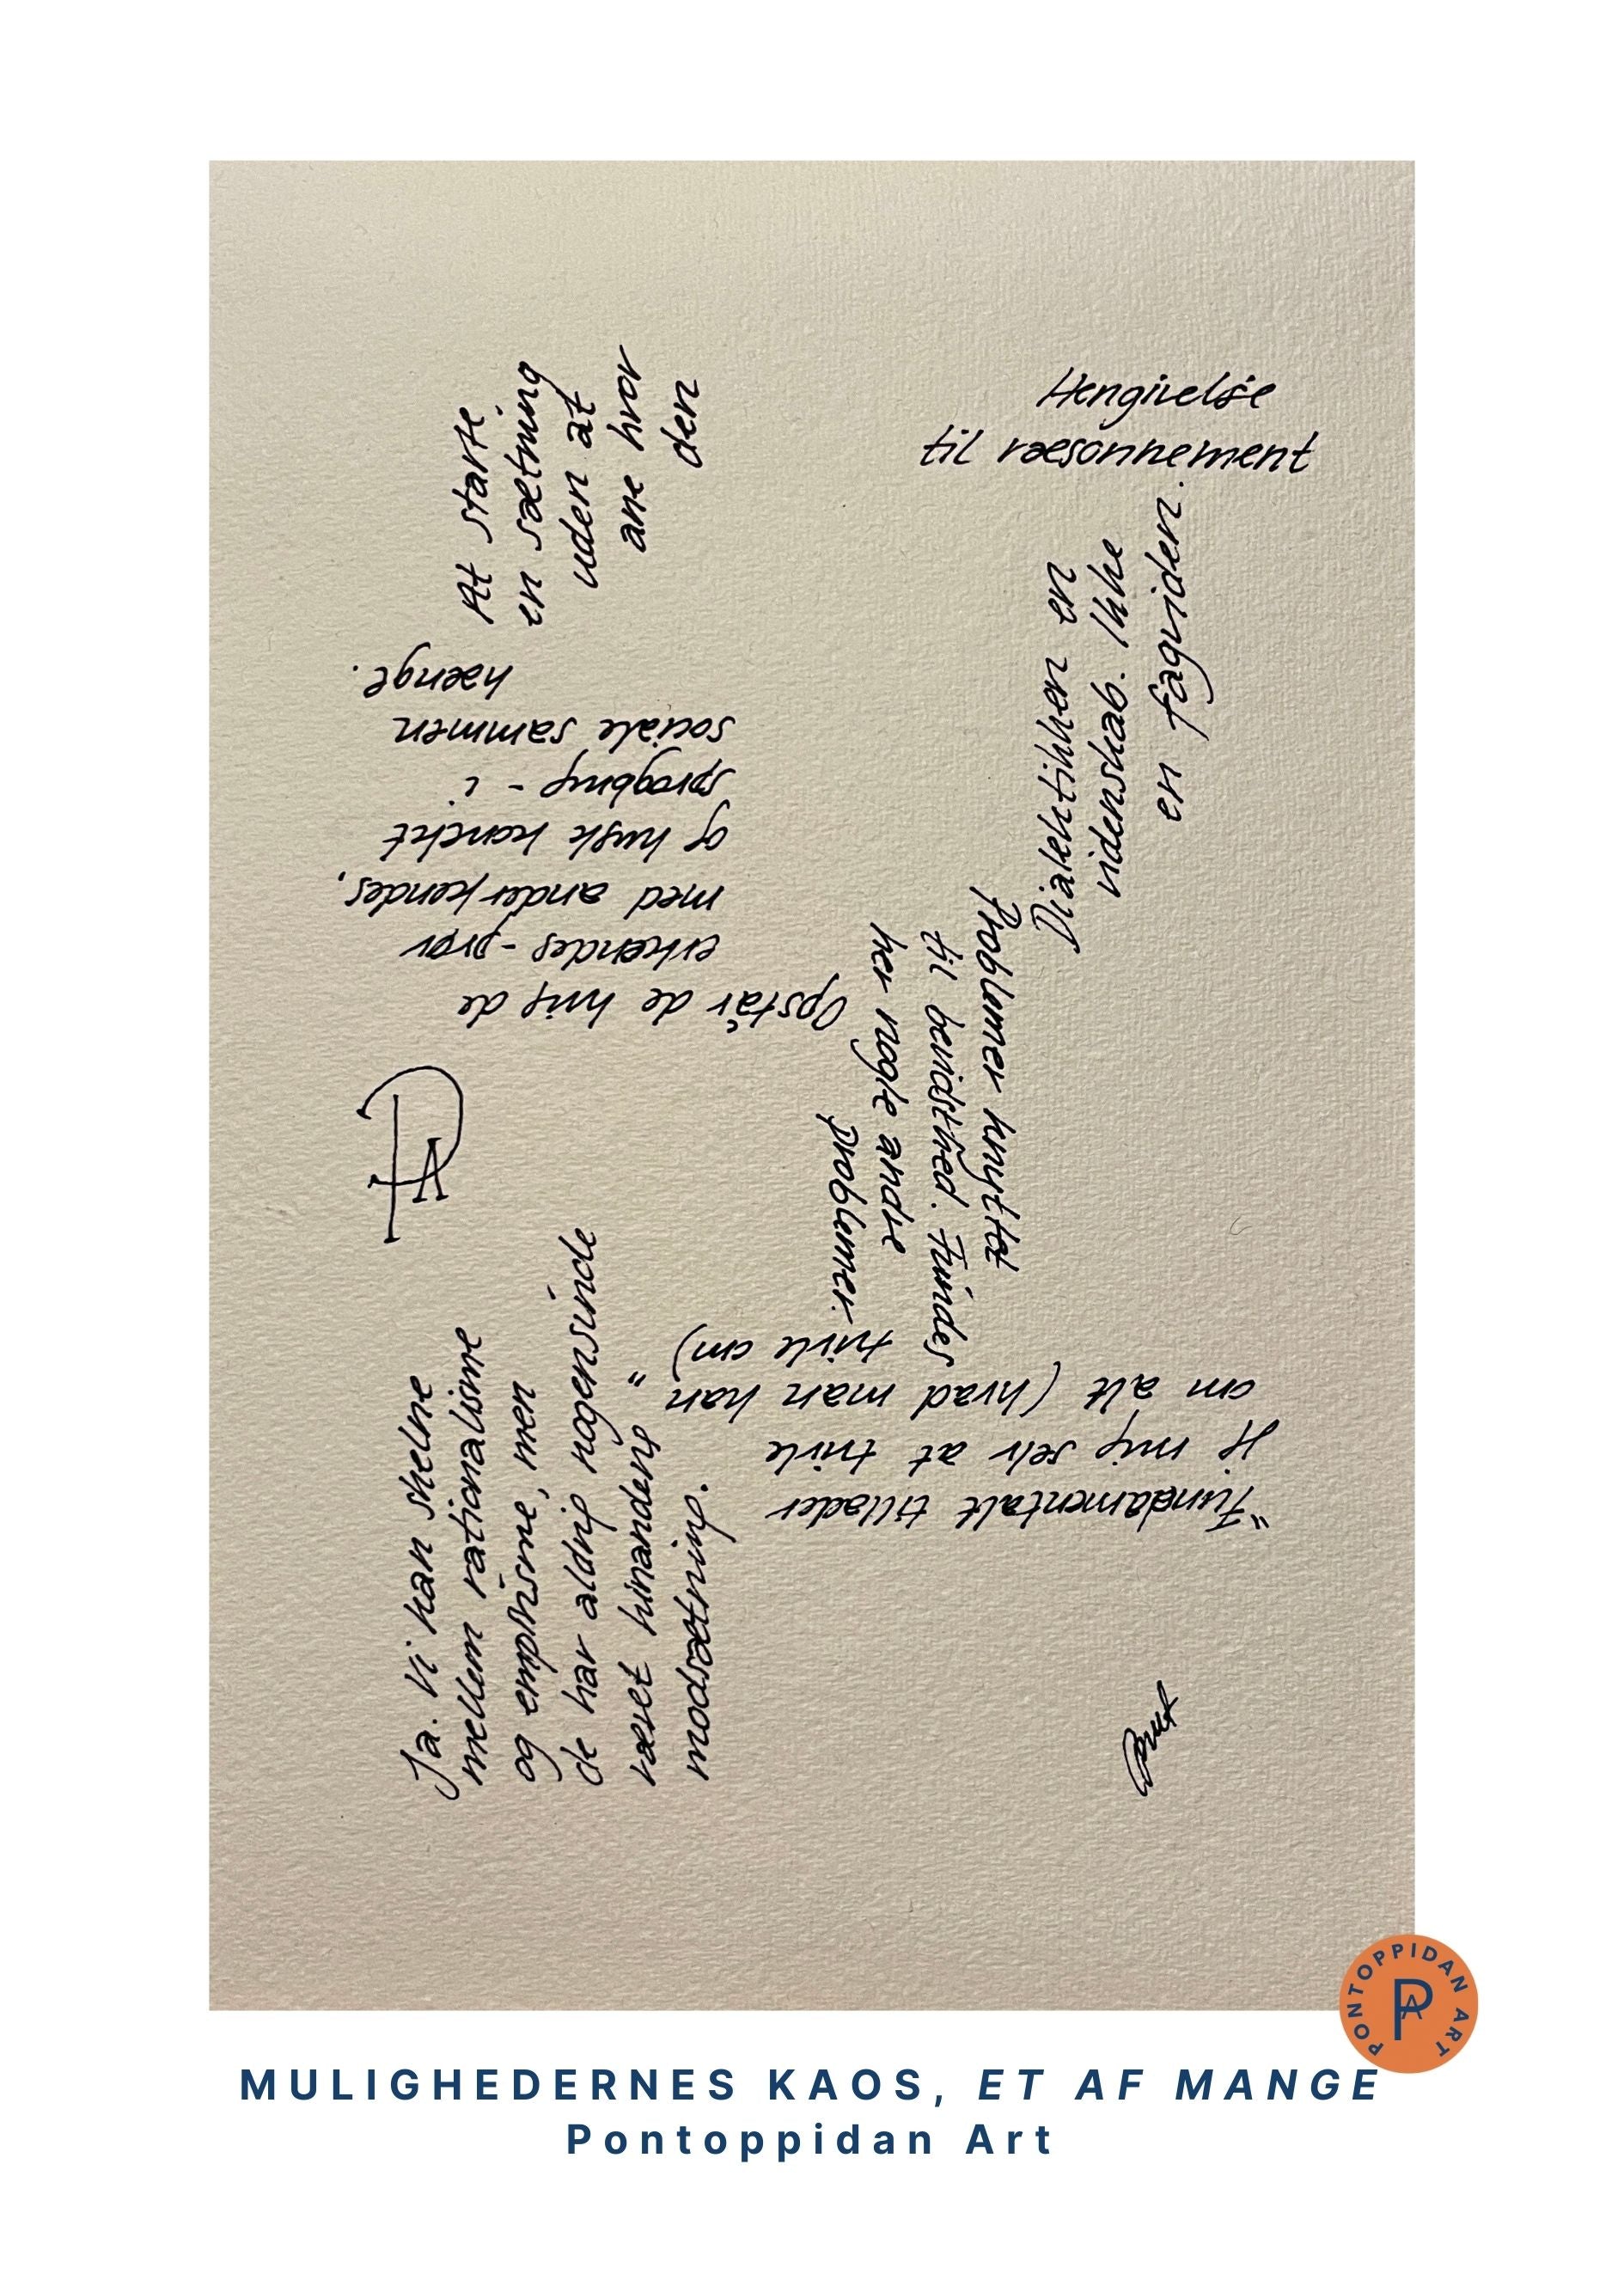 Hengivelse
til ræsonnement
At starte
en sætning
uden at
ane hvor
den
Dialektikken en
videnskab. Ikke
en fagviden.
Opstår de krig de
erkendes - prøv
med anderkendes,
og husk hancket
sprogbrug - i
sociale sammen
hænge.
Problemer knyttet
til bevidsthed. Findes
her nogle andre
problemer.
"Fundamentalt tillader
jf mig selv at tvivle
om alt (hvad man kan
tvivle om)"
Ja. Vi kan skelne
mellem rationalisme
og empirisme, men
de har aldrig nogensinde
været hinandens
modsætning.
PA
PONTOPPIDAN ART
PA
MULIGHEDERNES KAOS, ET AF MANGE
Pontoppidan Art